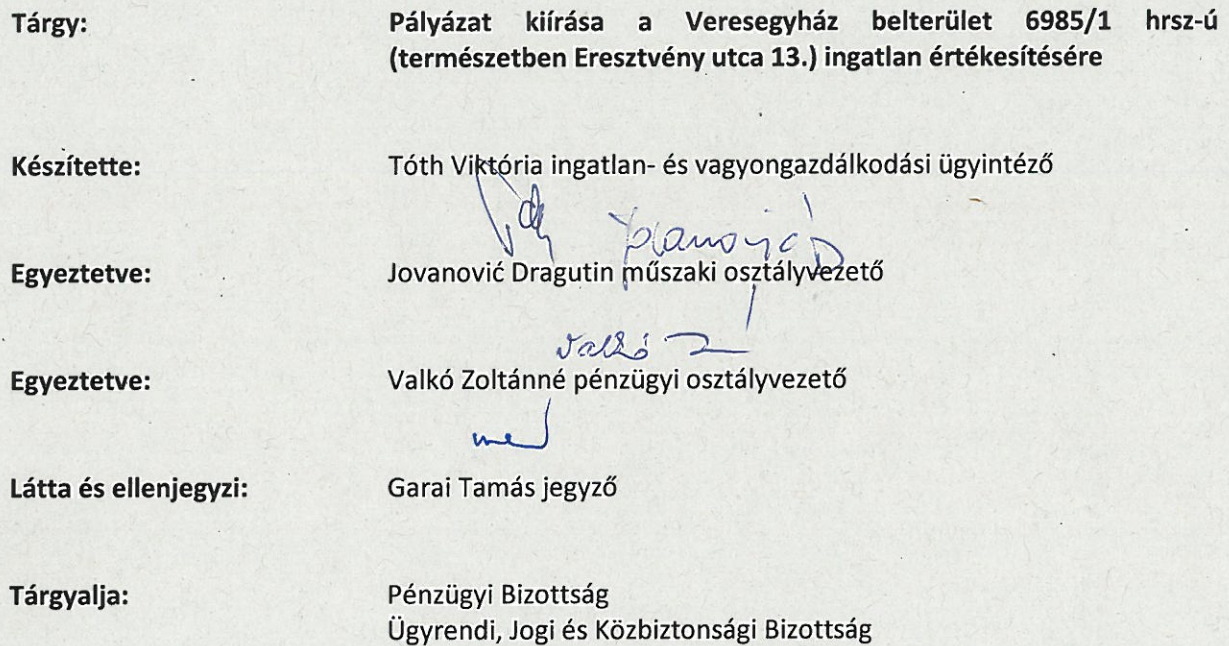 Tárgy: Pályázat kiírása a Veresegyház belterület 6985/1 hrsz-ú
(természetben Eresztvény utca 13.) ingatlan értékesítésére
Készítette: Tóth Viktória ingatlan- és vagyongazdálkodási ügyintéző
Egyeztetve: Jovanović Dragutin műszaki osztályvezető
Valkó Z
Egyeztetve: Valkó Zoltánné pénzügyi osztályvezető
Látta és ellenjegyzi: Garai Tamás jegyző
Tárgyalja: Pénzügyi Bizottság
Ügyrendi, Jogi és Közbiztonsági Bizottság